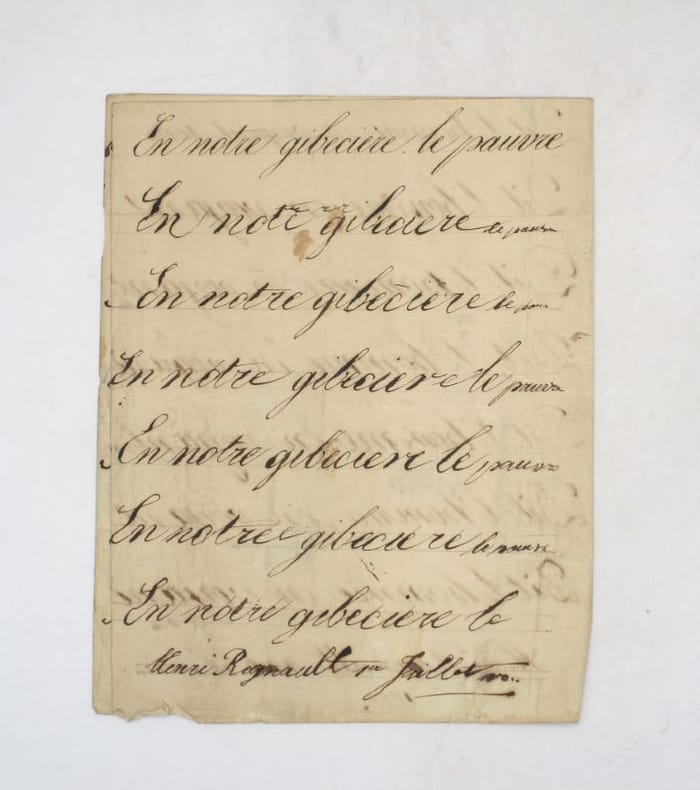 En notre gibecière. le pauvre
En notre gibeciere le pauvre
En notre gibeciere le pauv
En notre gibecière le pauvre
En notre gibeciere le pauvre
En notre gibeciere le pauvre
En notre gibeciere le
Henri Regnault 1er Juillet